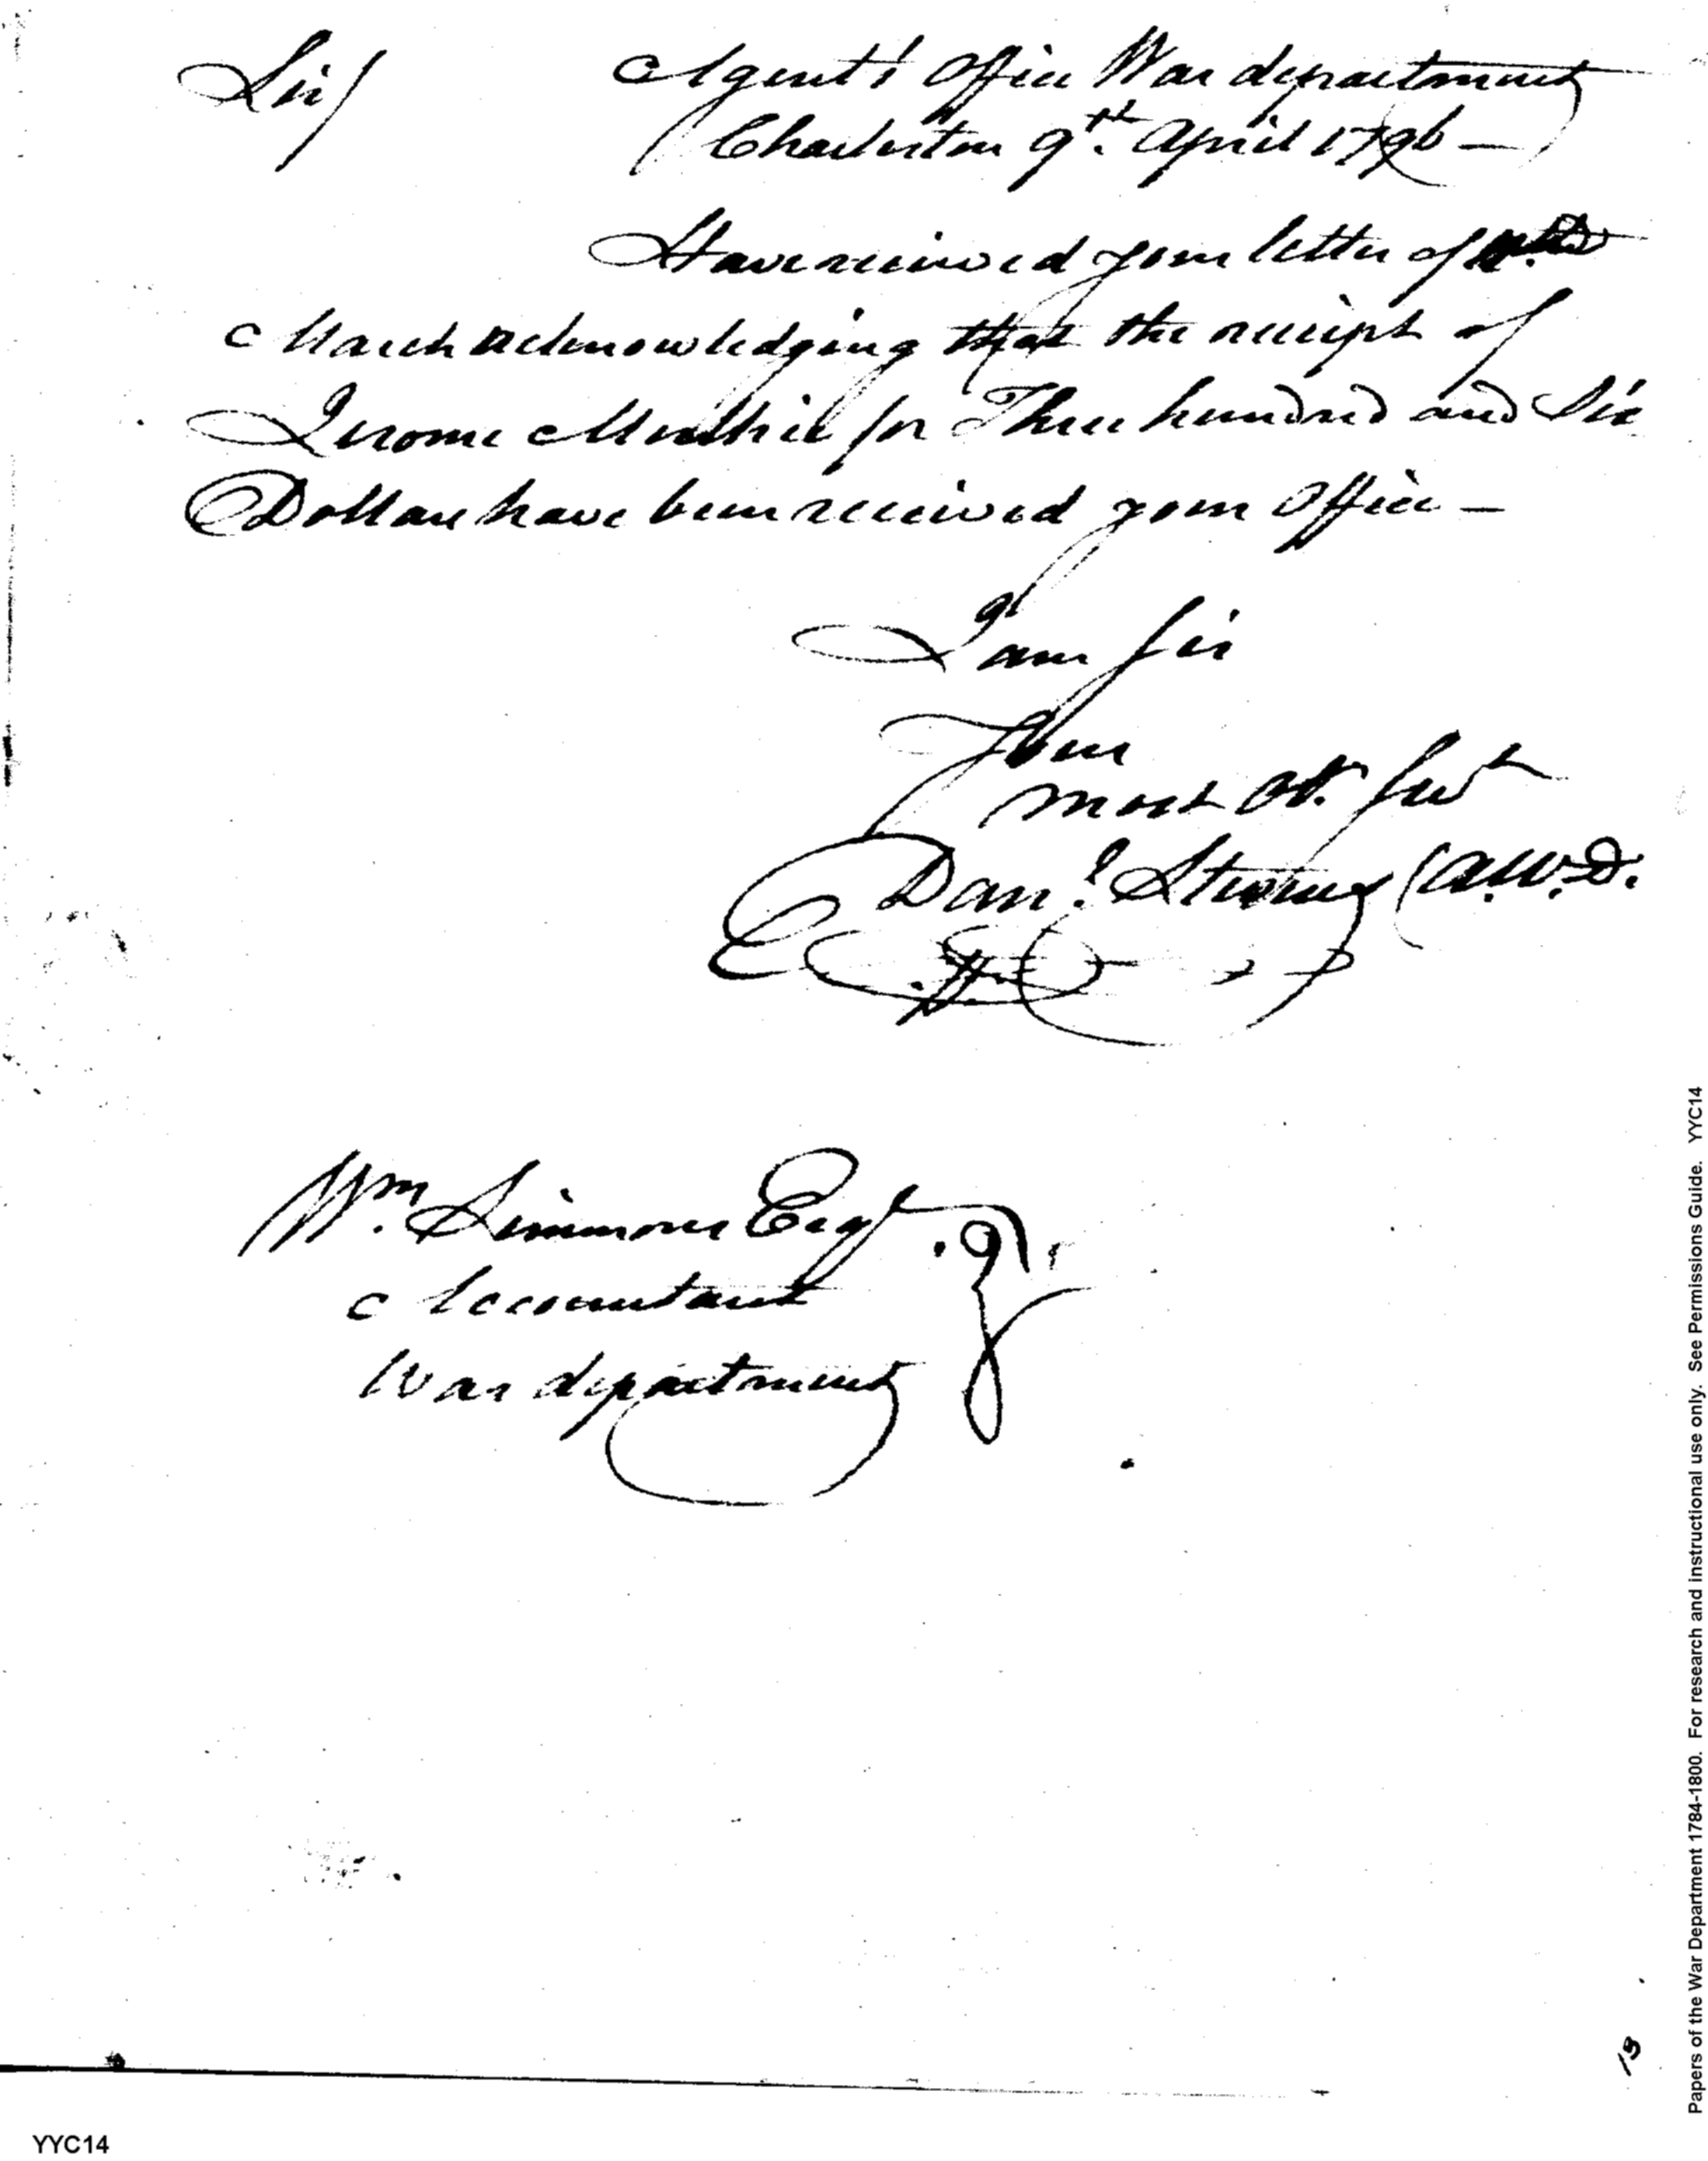 Sir/
Agent's Office War department
Charleston 9th. April 1796 —
Have received your letter of
March acknowledging that the receipt of
Jerome for Three hundred and Six
Dollars have been received your Office —
I am Sir
Your
most Ob. Servt
Danl. Stevens (A.W.D.
Wm. Simmons Esqr.
Accountant
War department
19
YYC14
Papers of the War Department 1784-1800. For research and instructional use only. See Permissions Guide. YYC14